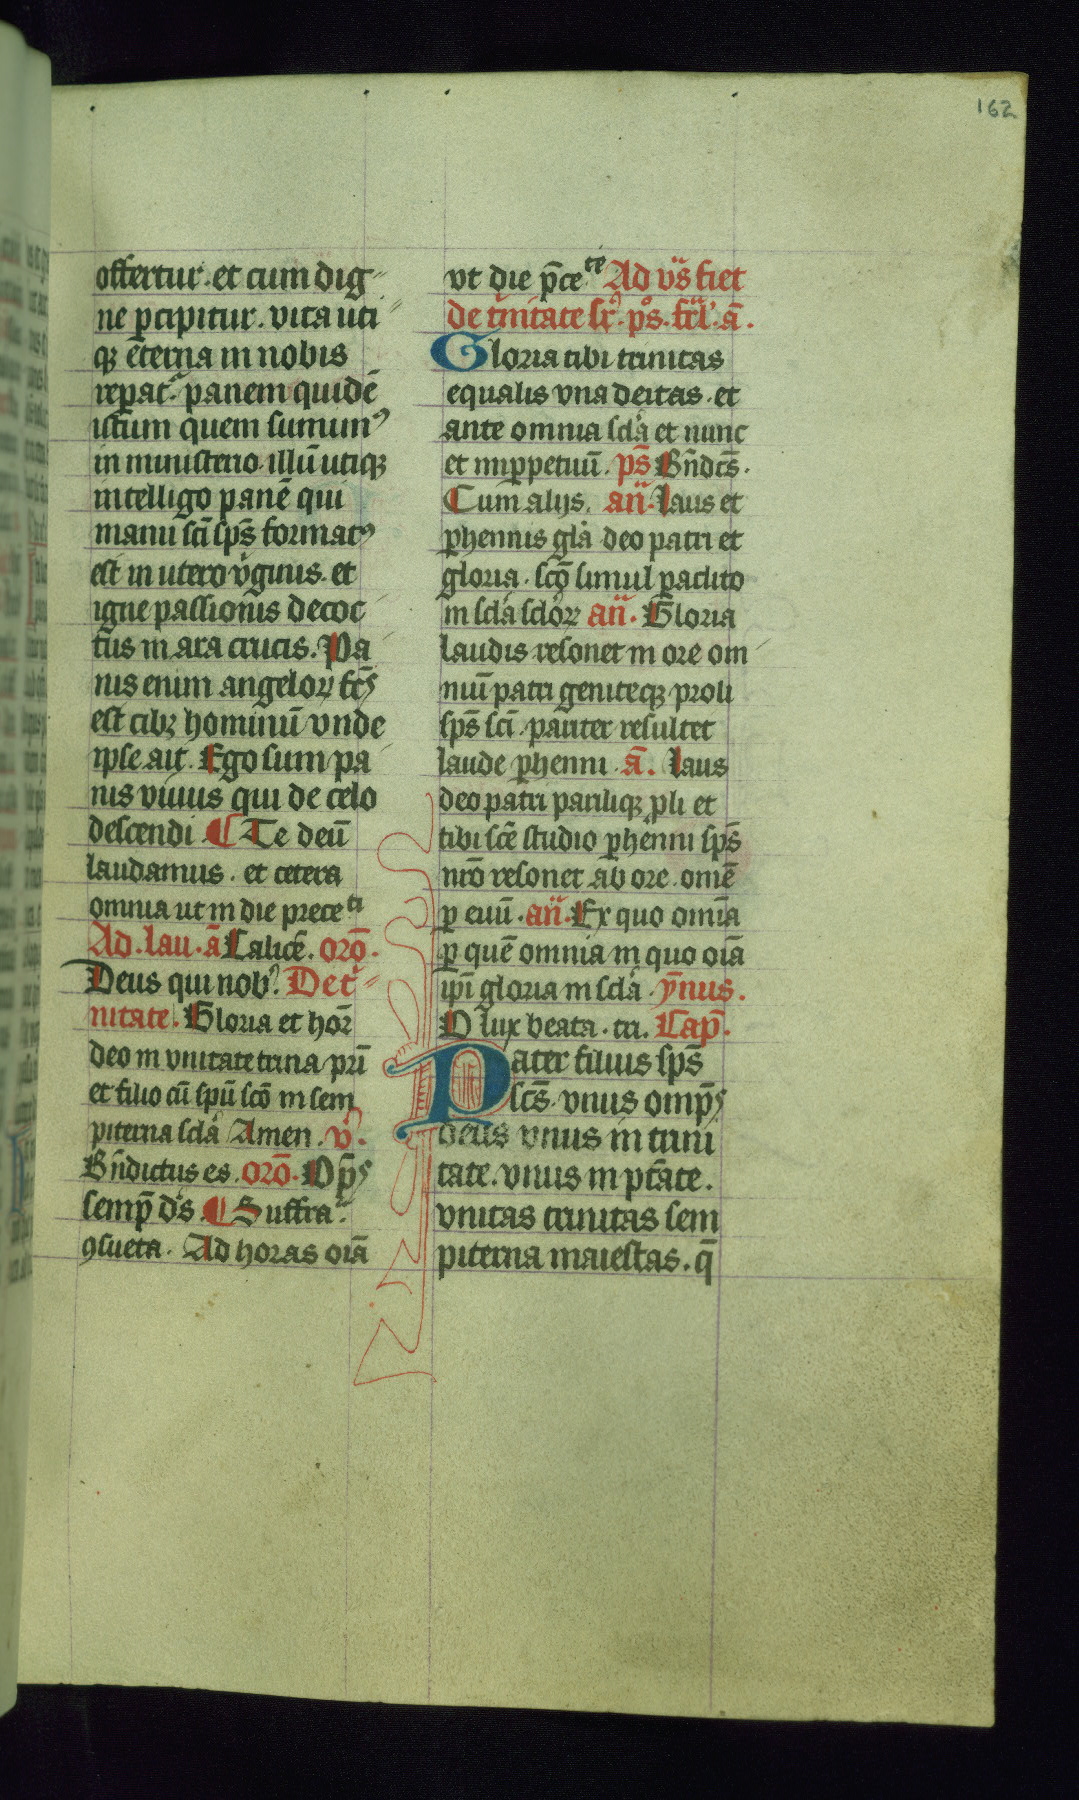 162
offertur. et cum dig
ne p̄cipitur. vita uti
qꝫ eterna in nobis
repat̉. panem quidē
istum quem sumimꝰ
in ministerio. illū utiqꝫ
intelligo panē qui
manu sc̄i sp̄s formatꝰ
est in utero v̉ginis. et
igne passionis decoc
tus in ara crucis. Pa
nis enim angeloꝝ
est cibꝫ hominū vnde
ipse ait. Ego sum pa
nis viuus qui de celo
descendi ¶ Te deū
laudamus. et cetera
omnia ut in die precetī
Ad. lau. ā Calicē. orō.
Deus qui nobꝰ. De t̉
nitate. Gloria et hor̄
deo in vnitate trina pr̄i
et filio cū sp̄u scō in sem
piterna scl̄a Amen. v̉.
Bn̄dictus es. orō. Op̄s
semp̄ d̄s. ¶ Suffra.
ꝯsueta. Ad horas oīa
vt die p̄cete Ad vs̄ fiet
de t̉nitate sr̄. pꝰs. ā.
Gloria tibi trinitas
equalis vna deitas. et
ante omnia scl̄a et nunc
et inꝑpetuū. ps̄ Bn̄dcs̄.
Cum alijs. an̄. Laus et
ꝑhennis gl̄a deo patri et
gloria. scō simul paclito
in scl̄a scl̄oꝝ an̄. Gloria
laudis resonet in ore om
niū patri geniteqꝫ proli
sp̄s sc̄i. pariter resultet
laude ꝑhenni. ā. Laus
deo patri pariliqꝫ ꝓli et
tibi sc̄e studio ꝑhenni sp̄s
nr̄o resonet ab ore. omē
ꝑ euū. an̄. Ex quo omīa
ꝑ quē omnia in quo oīa
ip̄i gloria in scl̄a. ȳnus.
O lux beata. tri. Cap̄.
Pater filius sp̄s
sc̄s. vnus omp̄s
deus vnus in trini
tate. vnus in pt̄ate.
vnitas trinitas sem
piterna maiestas. q̄